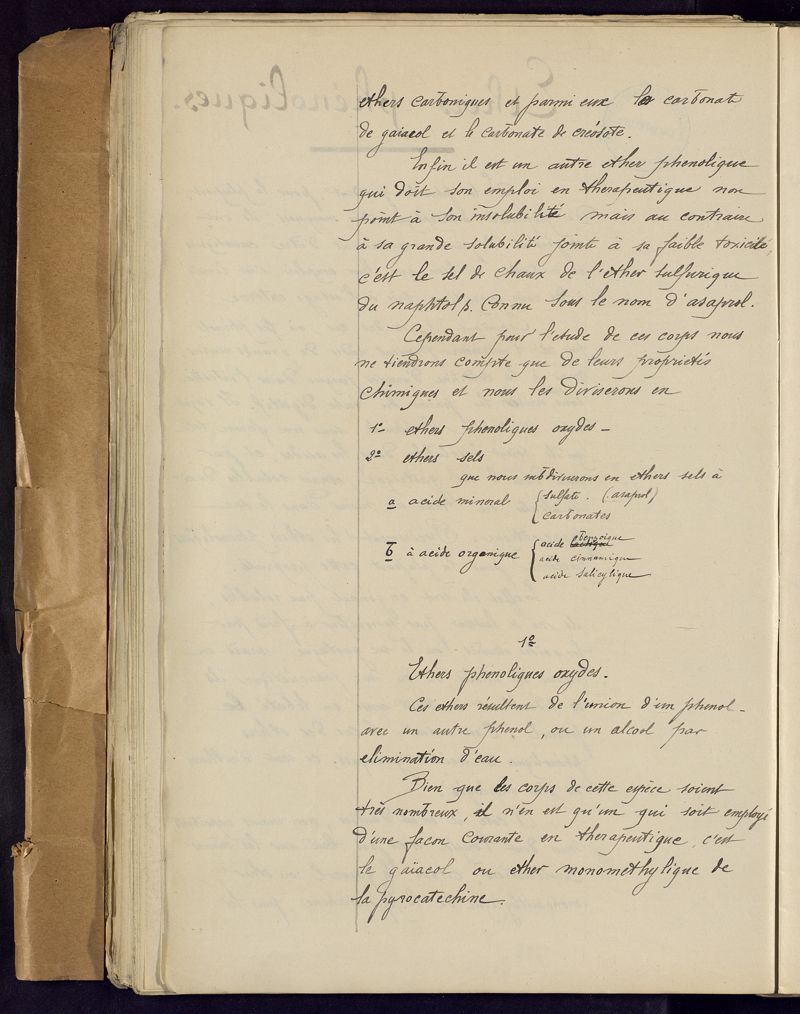 ethers carboniques et parmi eux le carbonate
de gaiacol et le carbonate de créosote.
Enfin il est un autre ether phenolique
qui doit son emploi en therapeutique non
point à son insolubilité mais au contraire
à sa grande solubilité jointe à sa faible toxicité,
c'est le sel de chaux de l'ether sulfurique
du naphtol β. Connu sous le nom d'asaprol.
Cependant pour l'etude de ces corps nous
ne tiendrons compte que de leurs proprietés
chimiques et nous les diviserons en
1º ethers phenoliques oxydes –
2º ethers sels
que nous subdiviserons en ethers sels à
a acide mineral { sulfate. (asaprol)
carbonates
b à acide organique { acide benzoique
acide cinnamique
acide salicylique
1º
Ethers phenoliques oxydes.
Ces ethers résultent de l'union d'un phenol –
avec un autre phenol, ou un alcool par
elimination d'eau.
Bien que les corps de cette espèce soient
très nombreux, il n'en est qu'un qui soit employé
d'une façon courante en therapeutique, c'est
le gaïacol ou ether monomethylique de
la pyrocatechine.